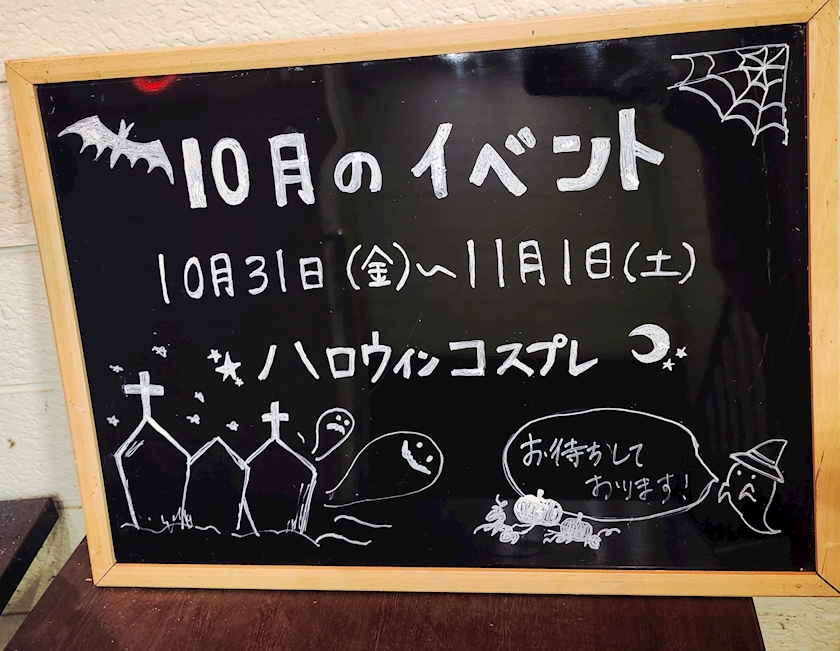 10月のイベント
10月31日(金)〜11月1日(土)
ハロウィンコスプレ
お待ちして
おります!